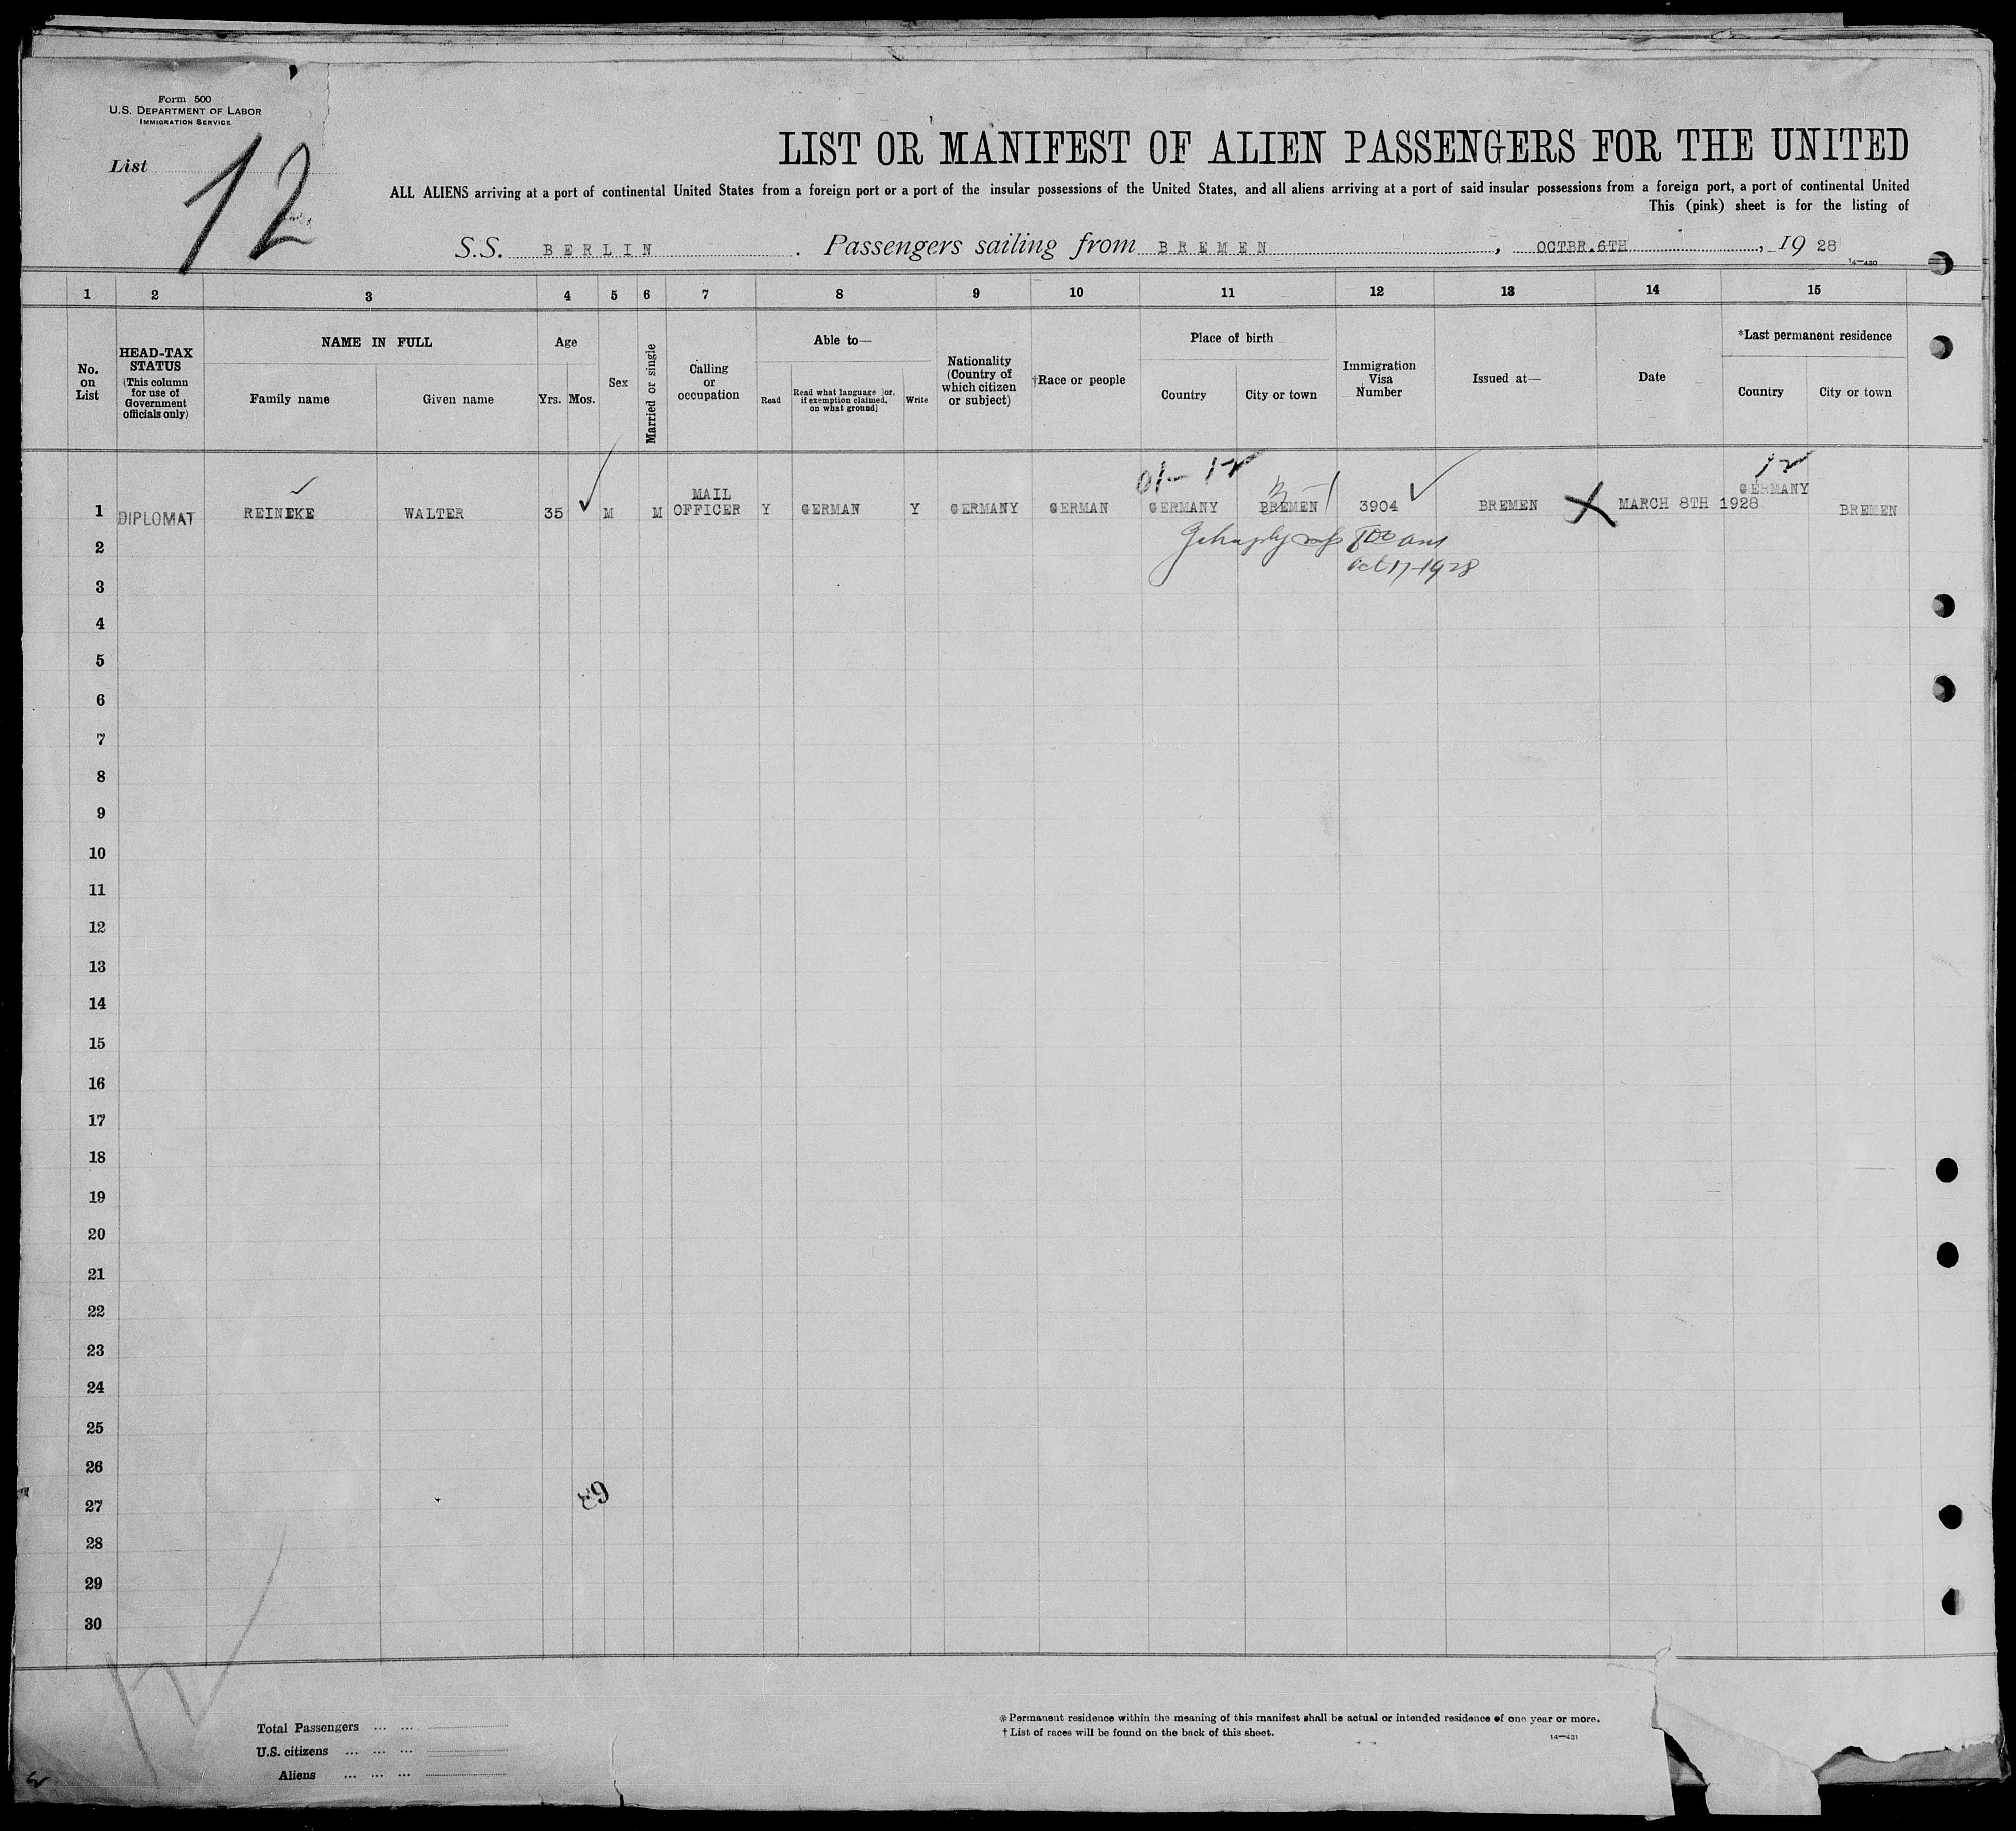 Form 500
U.S. DEPARTMENT OF LABOR
IMMIGRATION SERVICE
List 12
LIST OR MANIFEST OF ALIEN PASSENGERS FOR THE UNITED
ALL ALIENS arriving at a port of continental United States from a foreign port or a port of the insular possessions of the United States, and all aliens arriving at a port of said insular possessions from a foreign port, a port of continental United
This (pink) sheet is for the listing of
S.S. BERLIN. Passengers sailing from BREMEN, OCTBR.6TH, 19 28
14—430
1 2 3 4 5 6 7 8 9 10 11 12 13 14 15
No. on List
HEAD-TAX STATUS (This column for use of Government officials only)
NAME IN FULL
Family name
Given name
Age
Yrs. Mos.
Sex
Married or single
Calling or occupation
Able to—
Read
Read what language [or, if exemption claimed, on what ground]
Write
Nationality (Country of which citizen or subject)
†Race or people
Place of birth
Country
City or town
Immigration Visa Number
Issued at—
Date
*Last permanent residence
Country
City or town
01-12
12
1 DIPLOMAT REINEKE WALTER 35 M M MAIL OFFICER Y GERMAN Y GERMANY GERMAN GERMANY BREMEN 3904 BREMEN MARCH 8TH 1928 GERMANY BREMEN
2
Oct 17-1928
3
4
5
6
7
8
9
10
11
12
13
14
15
16
17
18
19
20
21
22
23
24
25
26
27
28
29
30
Total Passengers ... ...
U.S. citizens ... ... ...
Aliens ... ... ...
*Permanent residence within the meaning of this manifest shall be actual or intended residence of one year or more.
†List of races will be found on the back of this sheet.
14—431